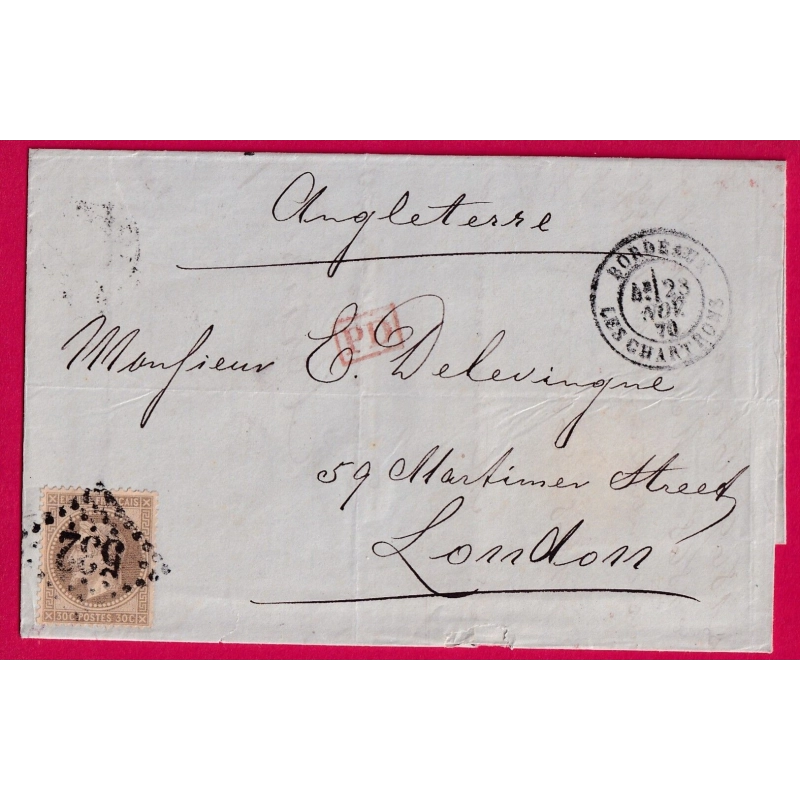 Angleterre
BORDEAUX
4E 23
NOV
70
LES CHARTRONS
PD
Monsieur E. Delevingne
59 Mortimer Street
London
EMPIRE FRANÇAIS
532
30C POSTES 30C